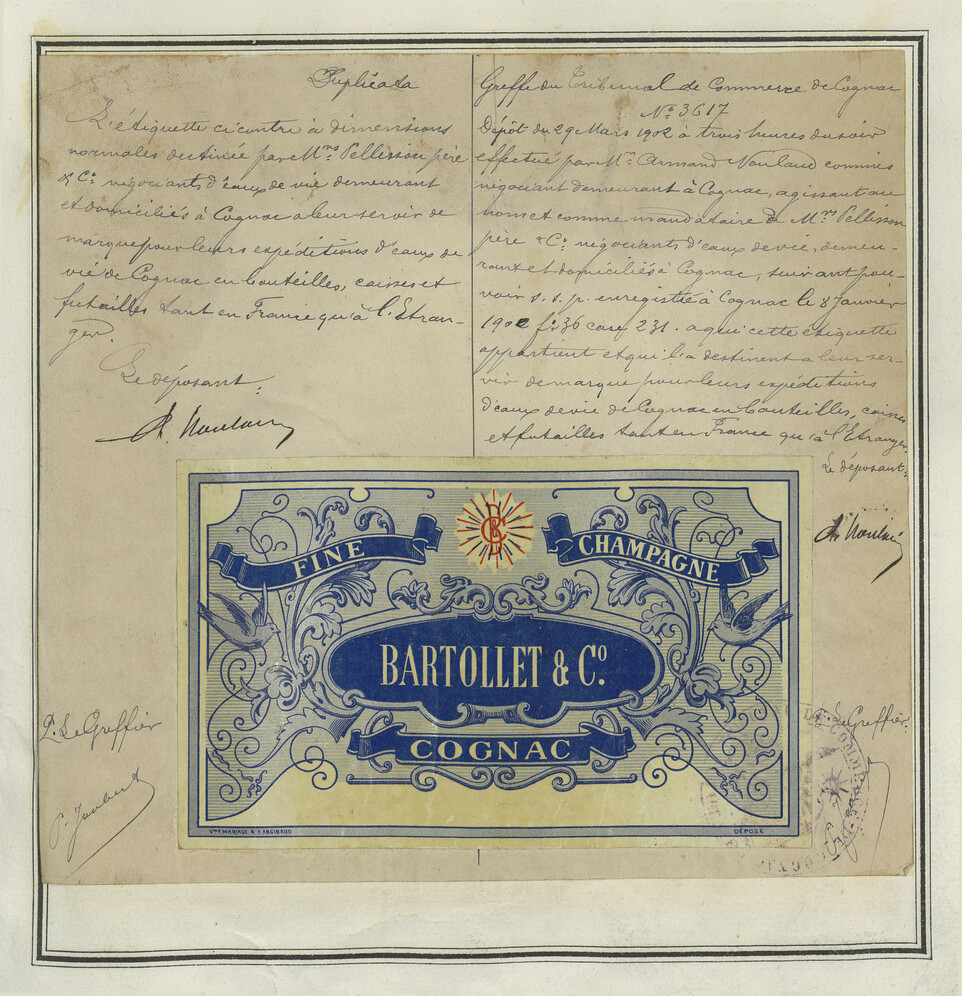 Duplicata
L'étiquette ci contre à dimensions
normales destinée par M.rs Pellisson père
& C.o négociants d'eaux de vie demeurant
et domiciliés à Cognac a leur servir de
marque pour leurs expéditions d'eaux de
vie de Cognac en bouteilles, caisses et
futailles tant en France qu'à l'Etran-
ger.
Le déposant:
Greffe du Tribunal de Commerce de Cognac
N.o 3617
Dépôt du 29 Mars 1902 à trois heures du soir
effectué par M.r Armand Naulaud commis
négociant demeurant à Cognac, agissant au
nom et comme mandataire de M.rs Pellisson
père & C.o négociants d'eaux de vie, demeu-
rant et domiciliés à Cognac, suivant pou-
voir s. s. p. enregistré à Cognac le 8 Janvier
1902 f.o 36 case 231. a qui cette étiquette
appartient et qui l'a destinent a leur ser-
vir de marque pour leurs expéditions
d'eaux de vie de Cognac en bouteilles, caisses
et futailles tant en France qu'à l'Etranger.
Le déposant:
FINE CHAMPAGNE
BARTOLLET & C.O
COGNAC
P. Le Greffier
Le Greffier.
Vve F. MARIAGE & F. ANGIBAUD
DÉPOSÉ